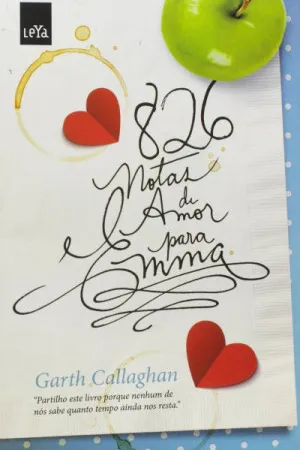 LeYa
826
Notas
de
Amor
para
Emma
Garth Callaghan
"Partilho este livro porque nenhum de
nós sabe quanto tempo ainda nos resta."